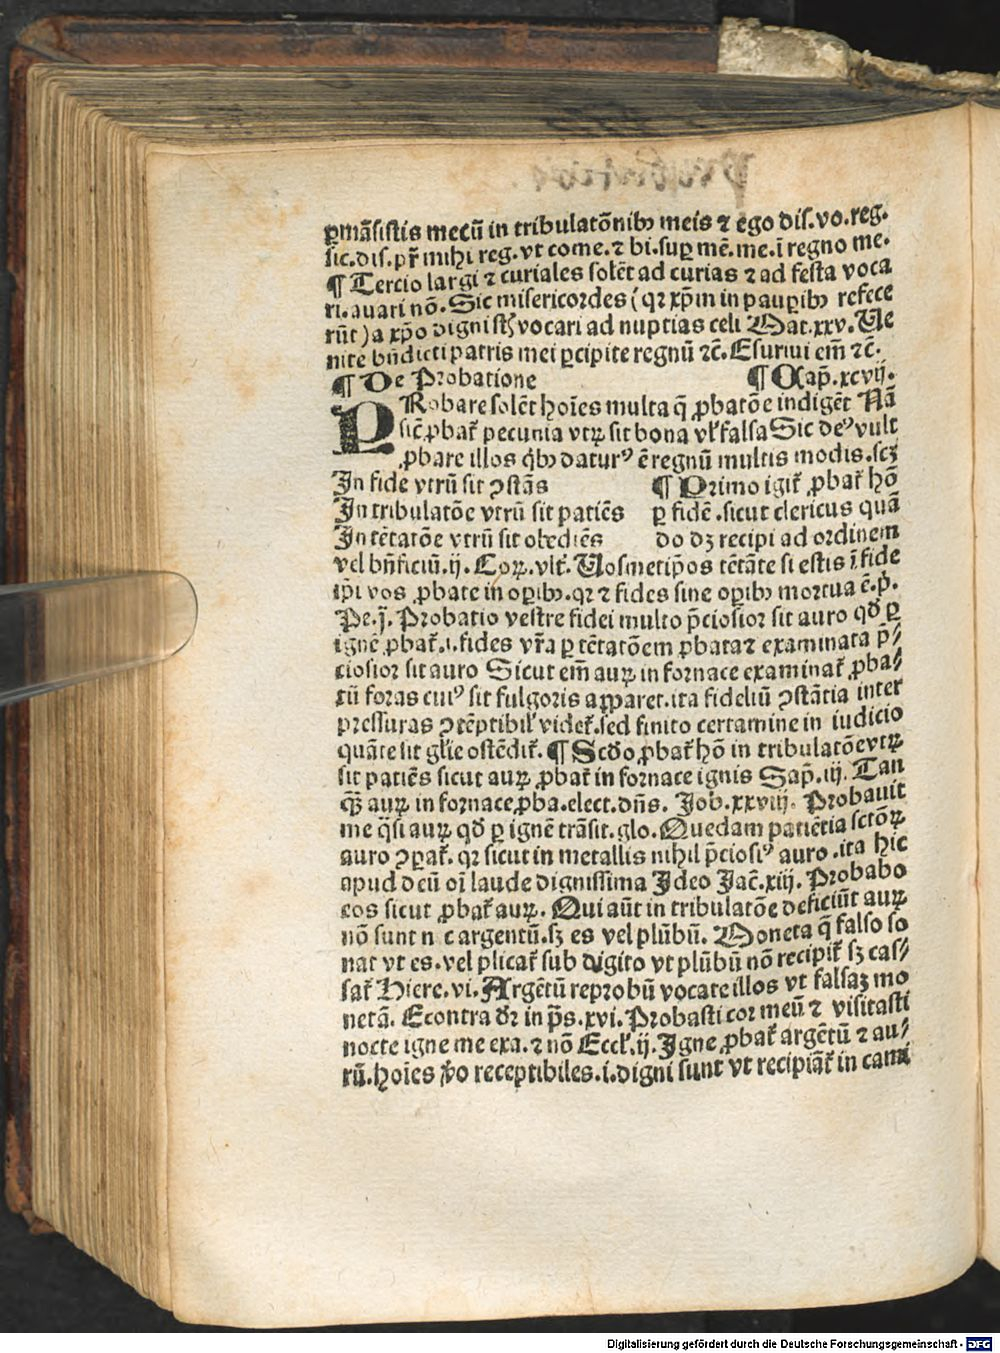 ꝑmãsistis mecũ in tribulatõnibꝫ meis ⁊ ego dis.vo.reg.
sic.dis.pr̃ mihi reg.vt come.⁊ bi.suꝑ mẽ.me.ĩ regno me.
¶ Tercio largi ⁊ curiales solẽt ad curias ⁊ ad festa voca
ri.auari nõ.Sic misericordes (qꝛ xp̃m in pauꝑibꝫ refece
rũt) a xp̃o digni st̃ vocari ad nuptias celi Mat.xxv.Ue
nite bñdicti patris mei ꝑcipite regnũ ⁊c̃.Esuriui em̃ ⁊c̃.
¶ De Probatione ¶ Cap̃.xcvij.
PRobare solẽt hoĩes multa q̃ ꝓbatõe indigẽt Nã
sic̃ ꝓbat̃ pecunia vtꝝ sit bona vl̃ falsa Sic deꝰ vult
ꝓbare illos q̃bꝫ daturꝰ ẽ regnũ multis modis.scꝫ
In fide vtrũ sit ꝯstãs ¶ Primo igit̃ ꝓbat̃ hõ
In tribulatõe vtrũ sit patiẽs ꝑ fidẽ.sicut clericus quã
In tẽtatõe vtrũ sit obediẽs do dꝫ recipi ad ordinem
vel bñficiũ.ij.Coꝝ.vlt̃.Uosmetip̃os tẽtãte si estis ĩ fide
ip̃i vos ꝓbate in oꝑibꝫ.qꝛ ⁊ fides sine oꝑibꝫ mortua ẽ.p̃.
Pe.j.Probatio vestre fidei multo p̃ciosior sit auro qd̃ ꝑ
ignẽ ꝓbat̃.i.fides vr̃a ꝑ tẽtatõem ꝓbata ⁊ examinata p̃/
ciosior sit auro Sicut em̃ auꝝ in fornace examinat̃ ꝓba/
tũ foras cuiꝰ sit fulgoris apparet.ita fideliũ ꝯstãtia inter
pressuras ꝯtẽptibil̃ videt̃.sed finito certamine in iudicio
quãte sit gl̃ie ostẽdit̃.¶ Scd̃o ꝓbat̃ hõ in tribulatõe vtꝝ
sit patiẽs sicut auꝝ ꝓbat̃ in fornace ignis Sap̃.iij.Tan
q̃ꝫ auꝝ in fornace ꝓba.elect.dñs. Job.xxviij. Probauit
me q̃si auꝝ qd̃ ꝑ ignẽ trãsit.glo.Quedam patiẽtia sctõꝝ
auro ꝯꝑat̃.qꝛ sicut in metallis nihil p̃ciosiꝰ auro.ita hic
apud deũ oĩ laude dignissima Ideo Zac̃.xiij. Probabo
eos sicut ꝓbat̃ auꝝ. Qui aũt in tribulatõe deficiũt auꝝ
nõ sunt nec argentũ.sꝫ es vel plũbũ. Moneta q̃ falso so
nat vt es.vel plicat̃ sub digito vt plũbũ nõ recipit̃ sꝫ cas/
sat̃ Hiere.vi.Argẽtũ reprobũ vocate illos vt falsaꝫ mo
netã. Econtra dr̃ in p̃s.xvi.Probasti cor meũ ⁊ visitasti
nocte igne me exa.⁊ nõ Eccl̃.ij.Igne ꝓbat̃ argẽtũ ⁊ au/
rũ.hoĩes ṽo receptibiles.i.digni sunt vt recipiãt̃ in cami
Digitalisierung gefördert durch die Deutsche Forschungsgemeinschaft - DFG